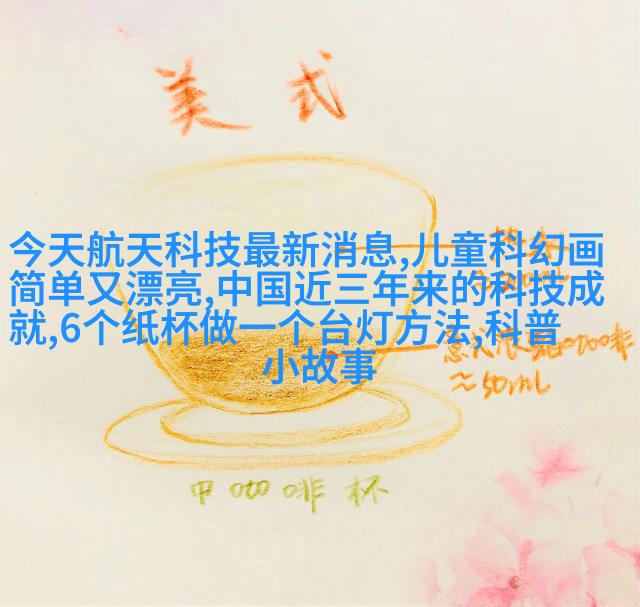 美式
今天航天科技最新消息,儿童科幻画
简单又漂亮,中国近三年来的科技成
就,6个纸杯做一个台灯方法,科普
小故事
≈50mL
中咖啡杯